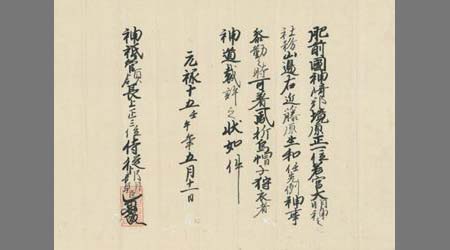 肥前國神埼郡境原正一位若宮大明神
社務山邊右近藤原生和任先例神事
參勤之時可着風折烏帽子狩衣者
神道裁許之状如件
元禄十五壬午年五月十一日
神祇管領長上正三位侍従卜部